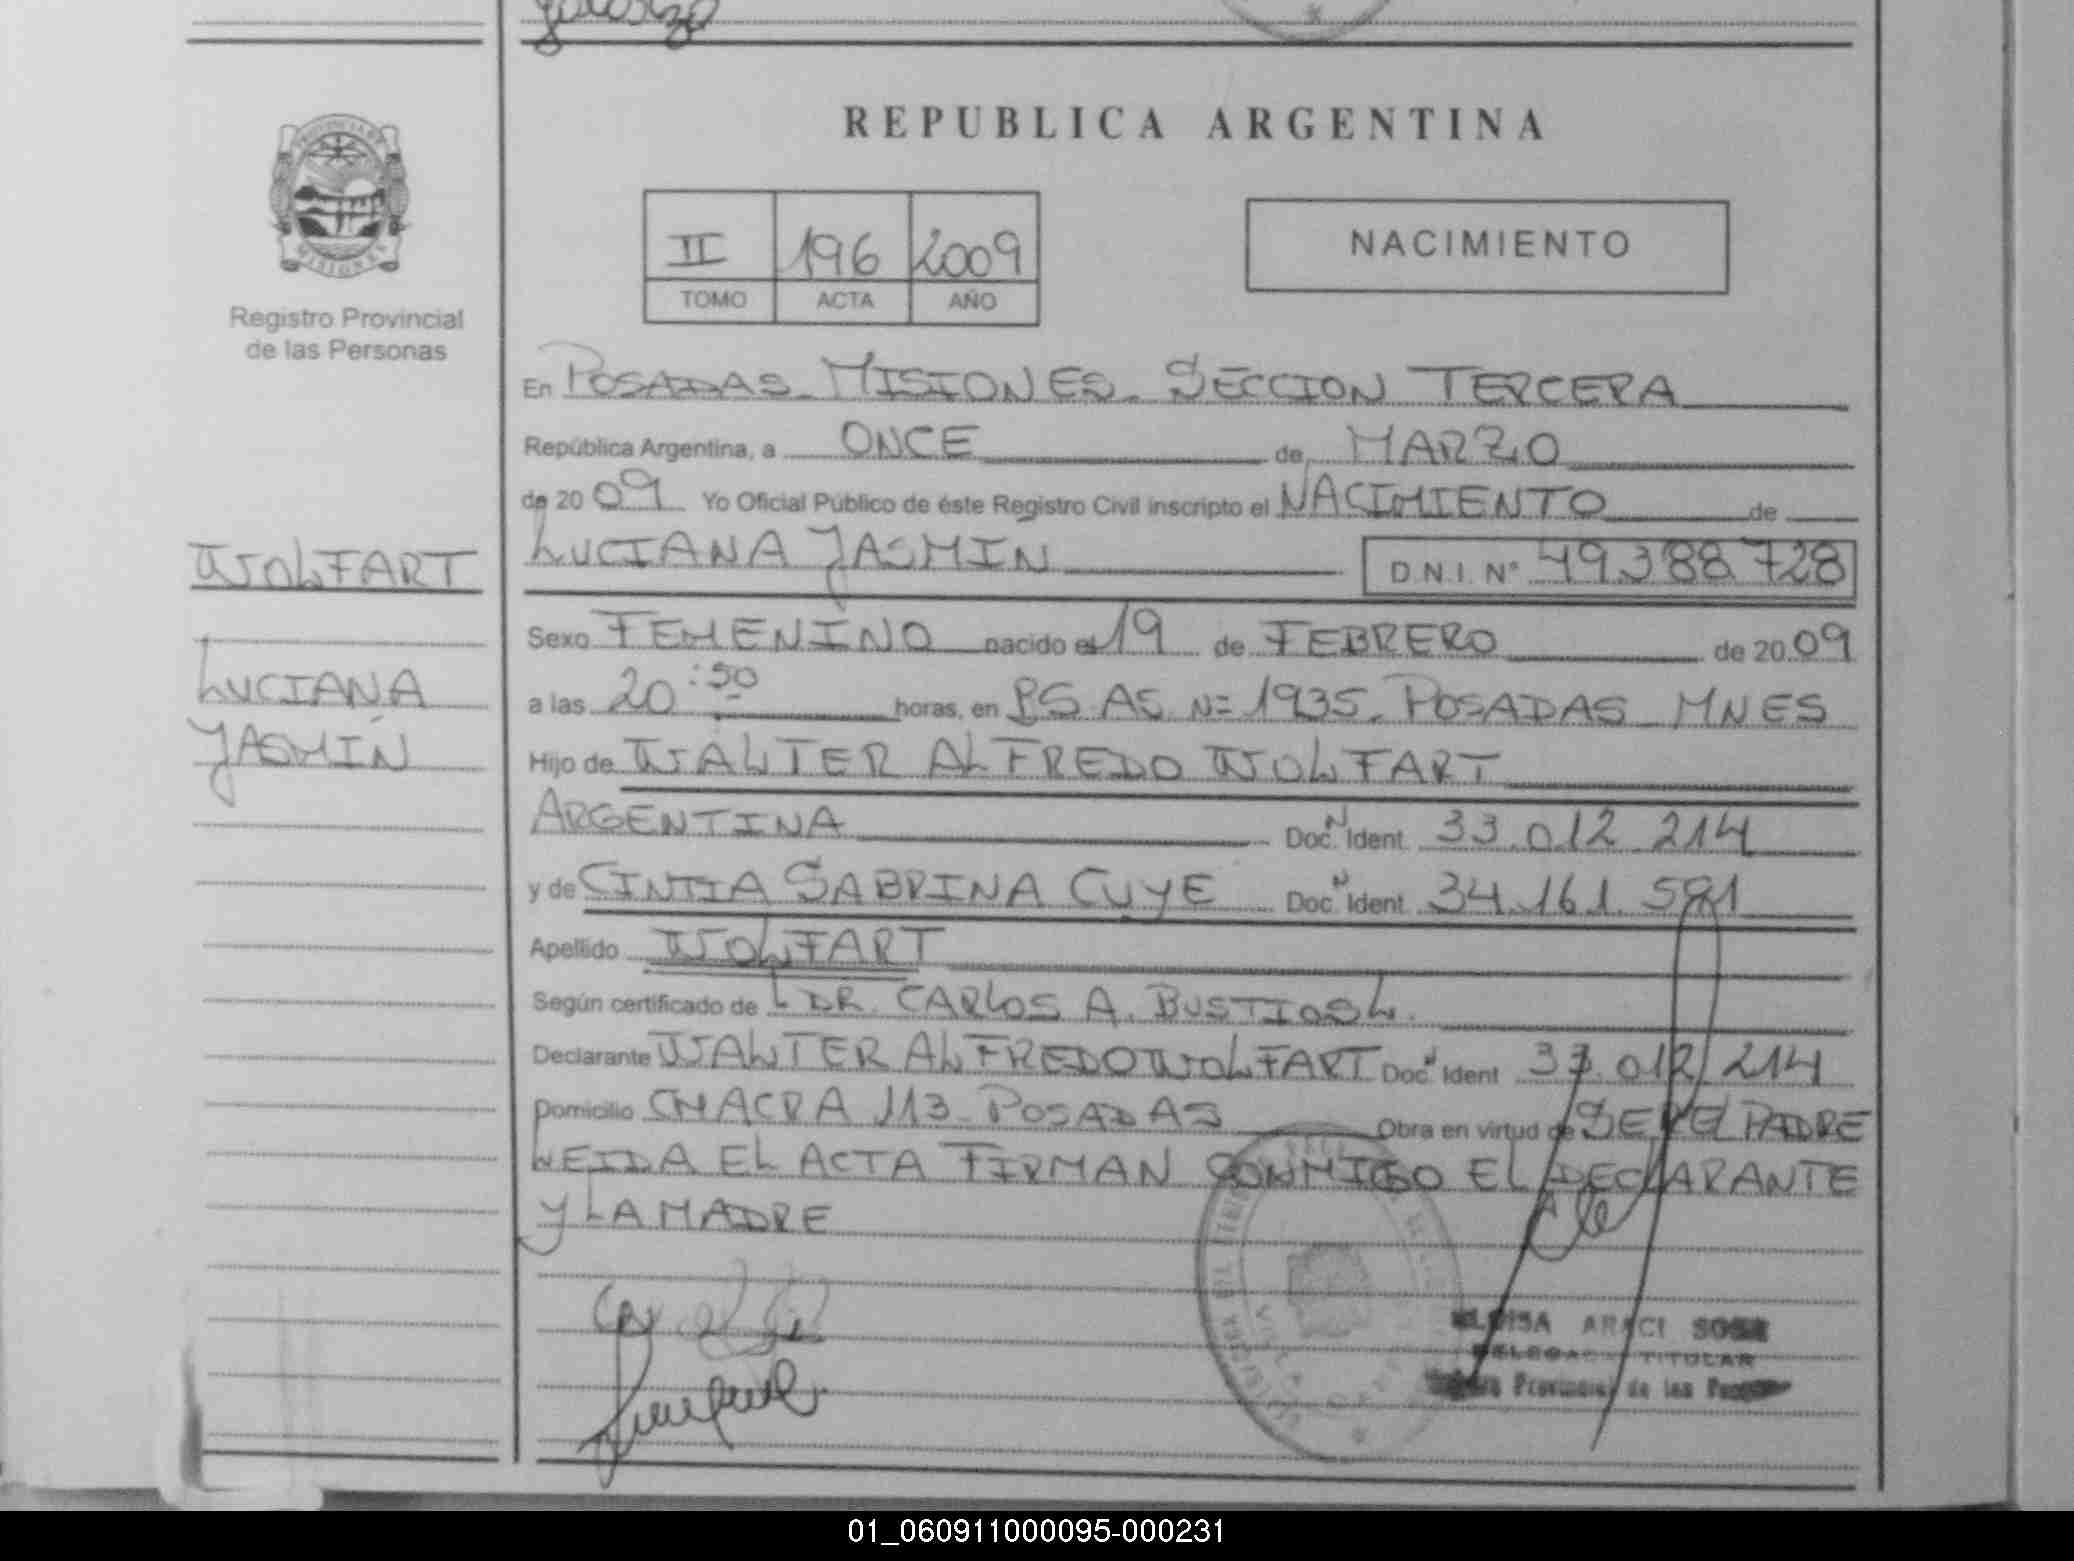 REPUBLICA ARGENTINA
II 196 2009
TOMO ACTA AÑO
NACIMIENTO
PROVINCIA DE
MISIONES
Registro Provincial
de las Personas
WOLFART
LUCIANA
YASMÍN
En POSADAS - MISIONES - SECCION TERCERA
República Argentina, a ONCE de MARZO
de 2009 Yo Oficial Público de éste Registro Civil inscripto el NACIMIENTO de
LUCIANA YASMÍN D.N.I. Nº 49.388.728
Sexo FEMENINO nacido el 19 de FEBRERO de 2009
a las 20:50 horas, en PS AS Nº 1935 - POSADAS - MNES
Hijo de WALTER ALFREDO WOLFART
ARGENTINA Doc. N Ident. 33.012.214
y de CINTIA SABRINA CUYE Doc. N Ident. 34.161.591
Apellido WOLFART
Según certificado de L DR. CARLOS A. BUSTIOS L.
Declarante WALTER ALFREDO WOLFART Doc. N Ident 33.012.214
Domicilio CHACRA 113 - POSADAS Obra en virtud de SER EL PADRE
LEIDA EL ACTA FIRMAN CONMIGO EL DECLARANTE
Y LA MADRE
ELOISA ARACI SOSA
DELEGADA TITULAR
Registro Provincial de las Personas
01_060911000095-000231